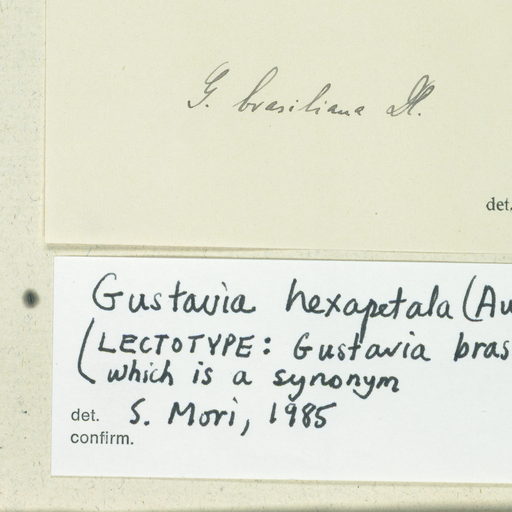 G. brasiliana DC.
det.
Gustavia hexapetala (Au
(LECTOTYPE: Gustavia bras
which is a synonym
det. S. Mori, 1985
confirm.